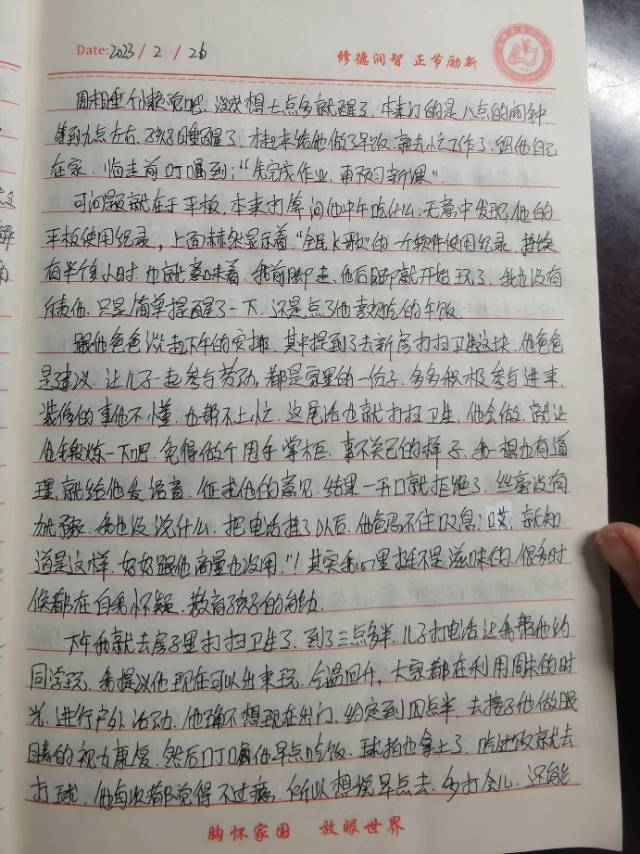 Date: 2023 / 2 / 26
修德润智 正节励新
周末想睡个懒觉吧，没想七点多就醒了，本来订的是八点的闹钟
等到九点左右，孩子睡醒了，起来给他做了早饭，就去忙工作了，留他自己
在家，临走前叮嘱到："先完成作业，再预习新课"。
可问题就在于平板，本来打算问他中午吃什么，无意中发现他的
平板使用纪录，上面赫然显示着"全民K歌"的一个软件使用纪录，持续
有半个多小时，也就意味着，我前脚走，他后脚就开始玩了，我也没有
责他，只是简单提醒了一下，还是点了他喜欢吃的午饭
跟他爸爸谈起下午的安排，其中提到了去新房打扫卫生这块，他爸爸
是建议，让儿子一起参与劳动，都是家里的一份子，多多积极参与进来，
装修的事他不懂，也帮不上忙，这尾活也就打扫卫生，他会做，就让
他锻炼一下吧，免得做个甩手掌柜，事不关己的样子，我一想也有道
理，就给他发语音，征求他的意见，结果一开口就拒绝了，丝毫没有
犹豫，我也没说什么，把电话挂了以后，他爸忍不住叹息；哎，就知
道是这样，好好跟他商量也没用"！其实我心里挺不是滋味的，很多时
候都在自我怀疑，教育孩子的能力
下午我就去房子里打扫卫生了，到了三点多半，儿子打电话让我帮他约
同学玩，我提议他现在可以出来玩，气温回升，大家都在利用周末的时
光，进行户外活动，他确不想现在出门，约定到四点半，去接了他做眼
睛的视力康复，然后叮嘱他早点吃饭，球拍也拿上了，吃过饭就去
打球，他每次都觉得不过瘾，所以想说早点去，多打会儿，还能
胸怀家国 放眼世界